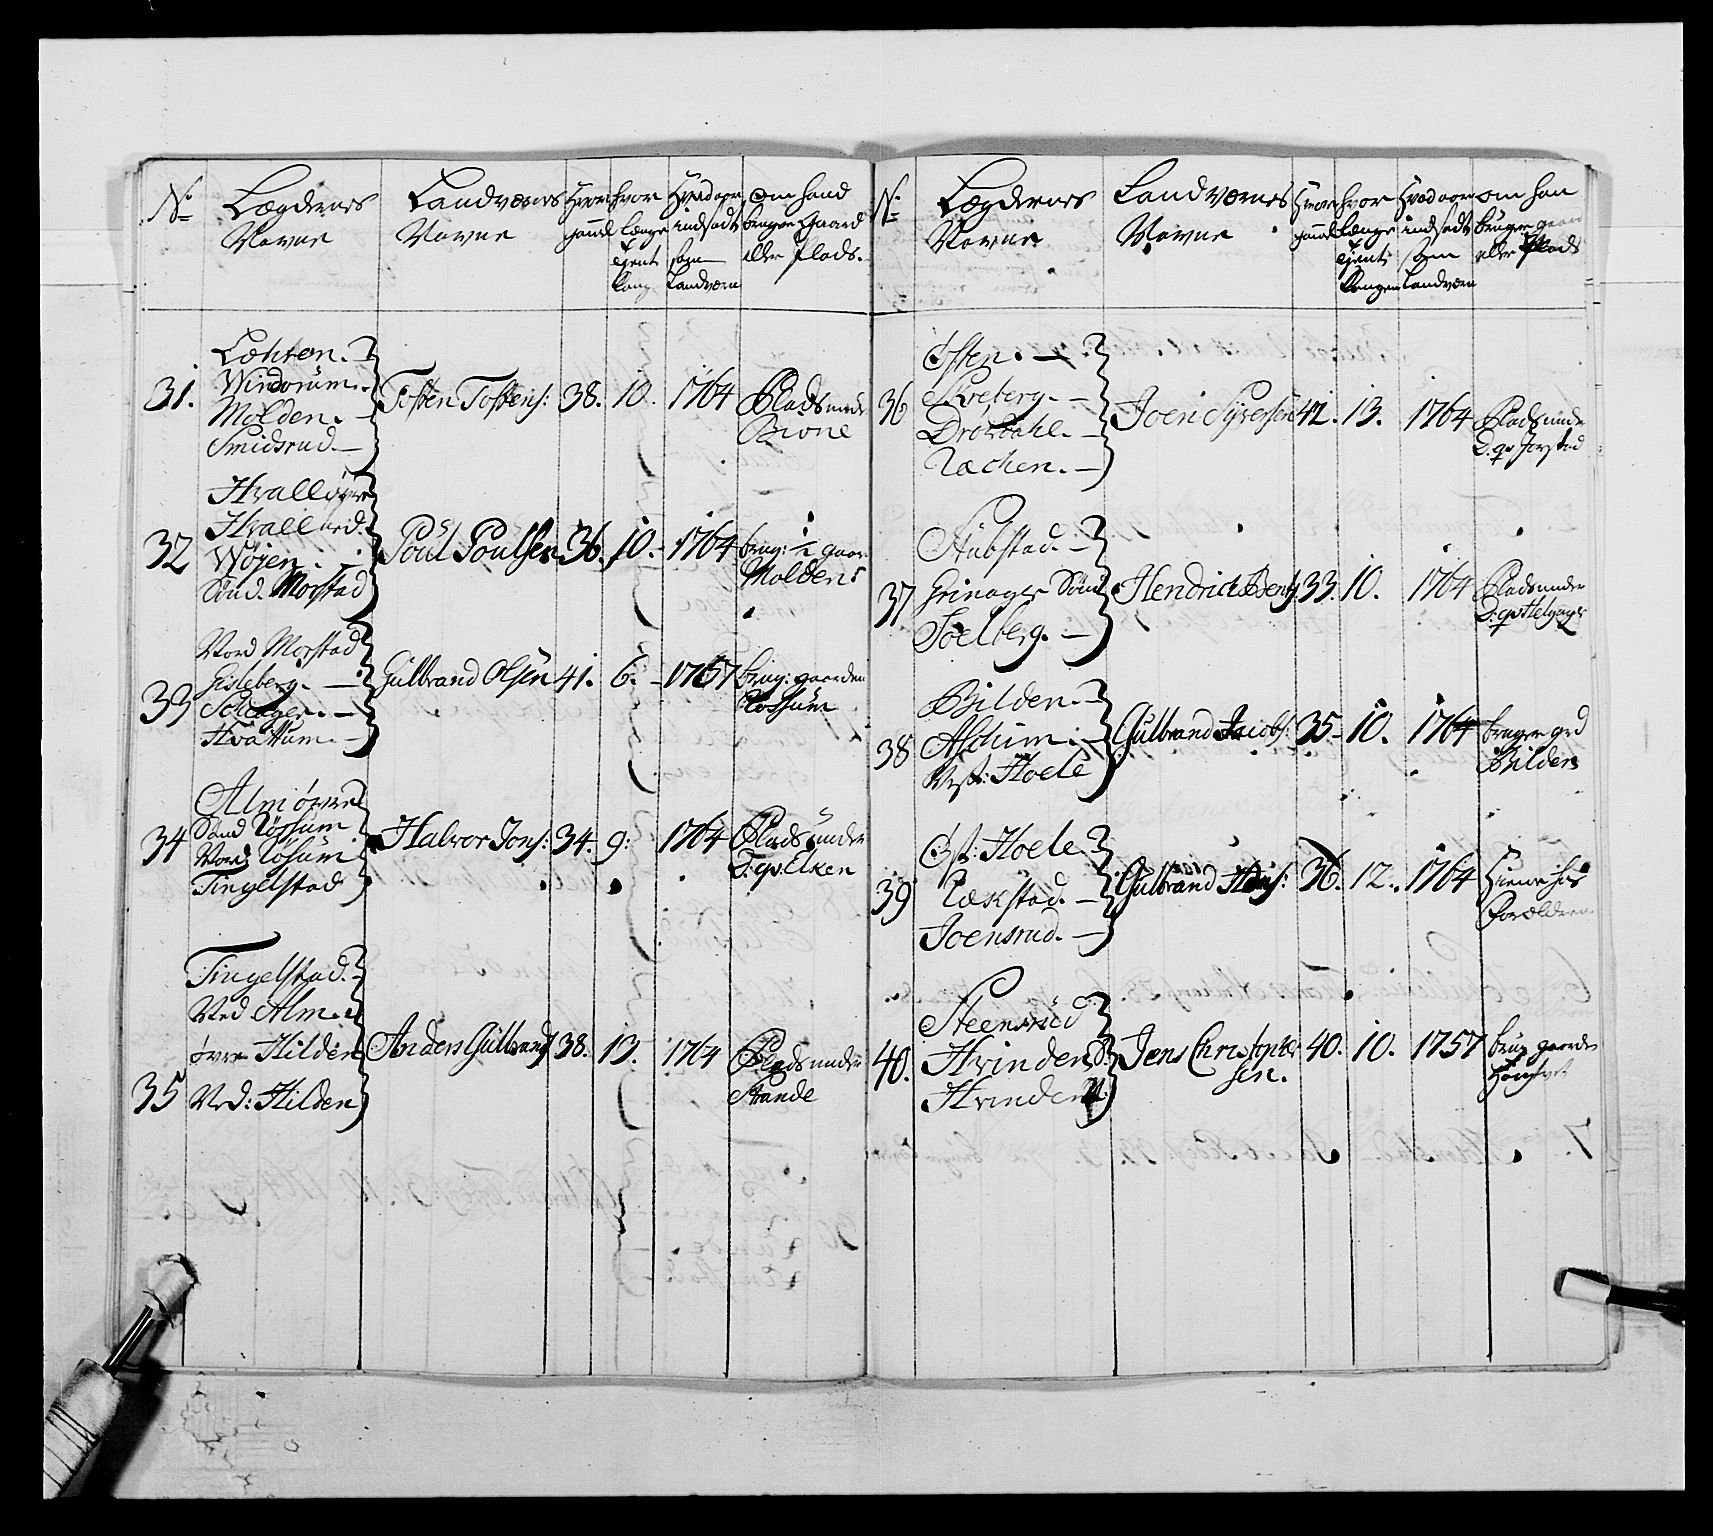 No Lægdernes Navne Landværnes Navne Hvor gammel hvor længe tjent kong Hvad aar indsadt som Landværn om hand bruger Gaard eller Plads.
31. Lohren. Windorum. Molden. Smidsrud. Tosten Tostens: 38. 10. 1764 Plads under Brone
32 Hvall øvre Hvall ned. Wøjen. Sønd. Morstad Poul Poulsen 36. 10. 1764 brug: 1/2 gaar Molden
33 Nord Morstad Gisleberg. Schiager. Hvattum. Gulbrand Olsen 41. 6. 1757 brug: gaarden Rossum
34 Alm øvre Sønd Røssum Nord Røsum Tingelstad Halvor Jons: 34. 9: 1764 Plads under D: gd. Elken
35 Tingelstad. Ned Alm. øvre Hilden Ned: Hilden Anders Gulbrands 38. 13. 1764 Plads under Strande
No Lægdernes Navne Landværnes Navne Hvor gammel hvor længe tjent Kongen Hvad aar indsadt som Landværn om han bruger gaard eller Plads
36 Østen. Skreberg. Drøvdahl. Rachen. Joen Syversen 42. 13. 1764 Plads under
37 Stubstad. Grinager Sønd Soelberg. Hendrich Bents. 33. 10. 1764 Plads under
38 Bilden. Aschim. Vest: Hoele Gulbrand Jacobs: 35 10. 1764 bruger grd Bilden
39 Øst: Hoele. Rækstad. Joensrud. Gulbrand Hans: 36. 12. 1764 Hiemme hos Forældrene
40. Steensrud Hvinden Ø. Hvinden V. Jens Christophersen. 40. 10. 1757 brug gaarden